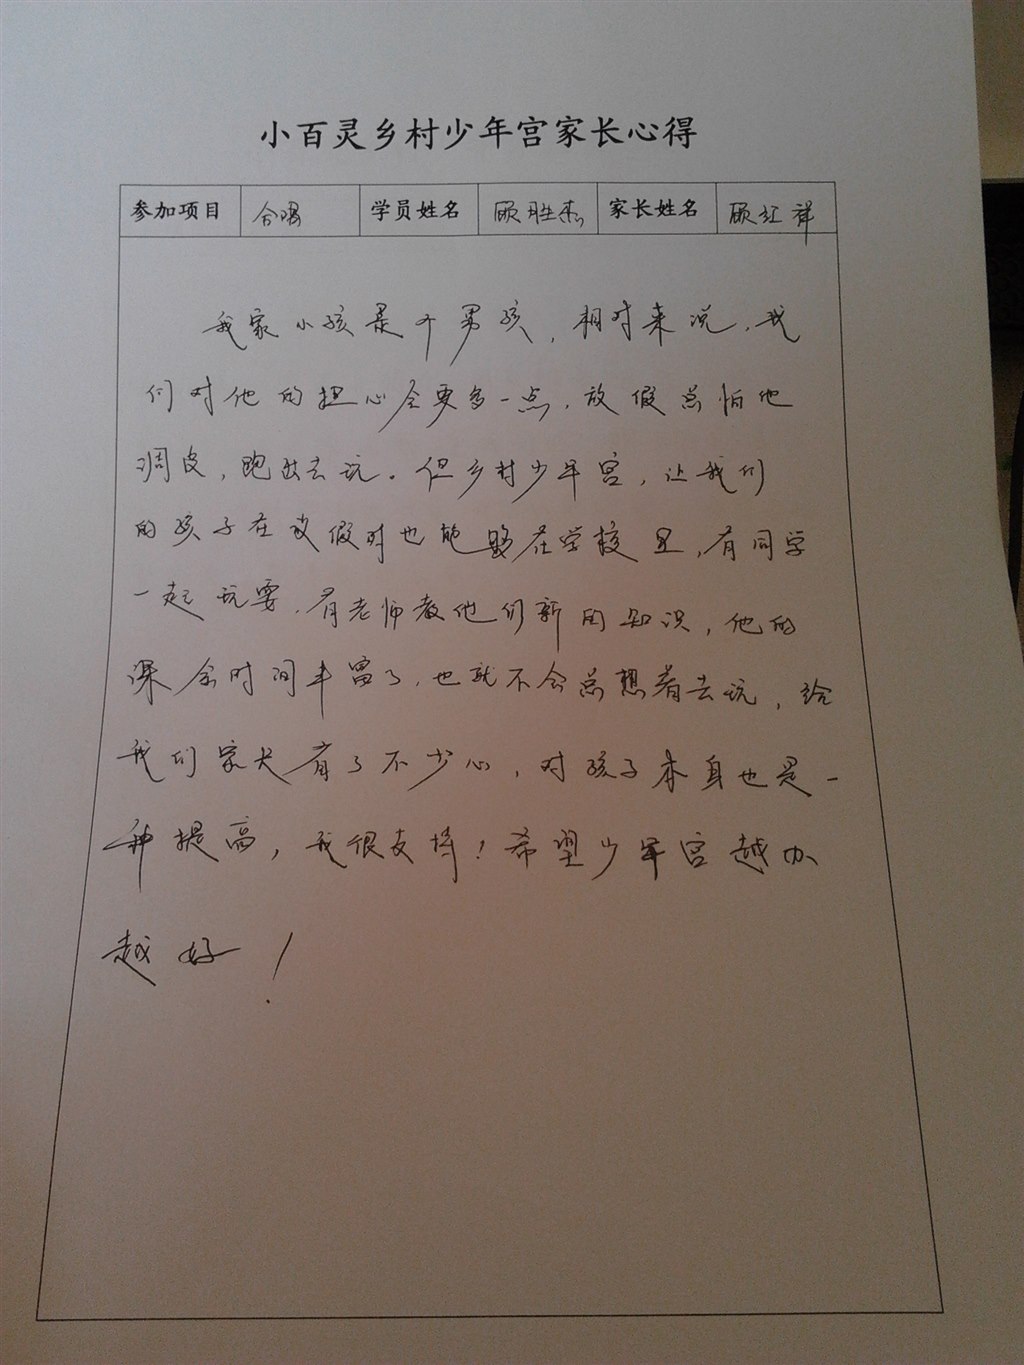 小百灵乡村少年宫家长心得
参加项目 合唱 学员姓名 顾胜杰 家长姓名 顾红祥
我家小孩是个男孩，相对来说，我
们对他的担心会要多一点，放假总怕他
调皮，跑出去玩。但乡村少年宫，让我们
的孩子在放假时也能够在学校里，有同学
一起玩耍，有老师教他们新的知识，他的
课余时间丰富了，也就不会总想着去玩，给
我们家长省了不少心，对孩子本身也是一
种提高，我很支持！希望少年宫越办
越好！